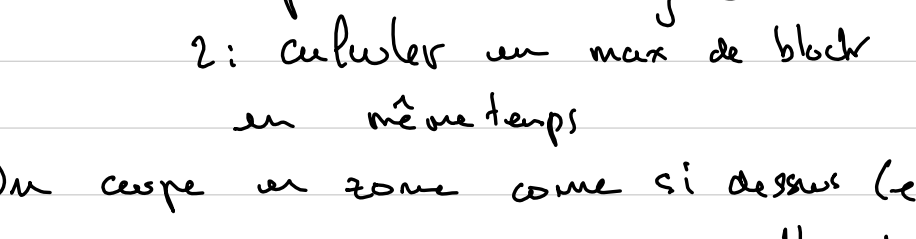 2: calculer un max de block
en même temps
On coupe en zone come si dessus (e